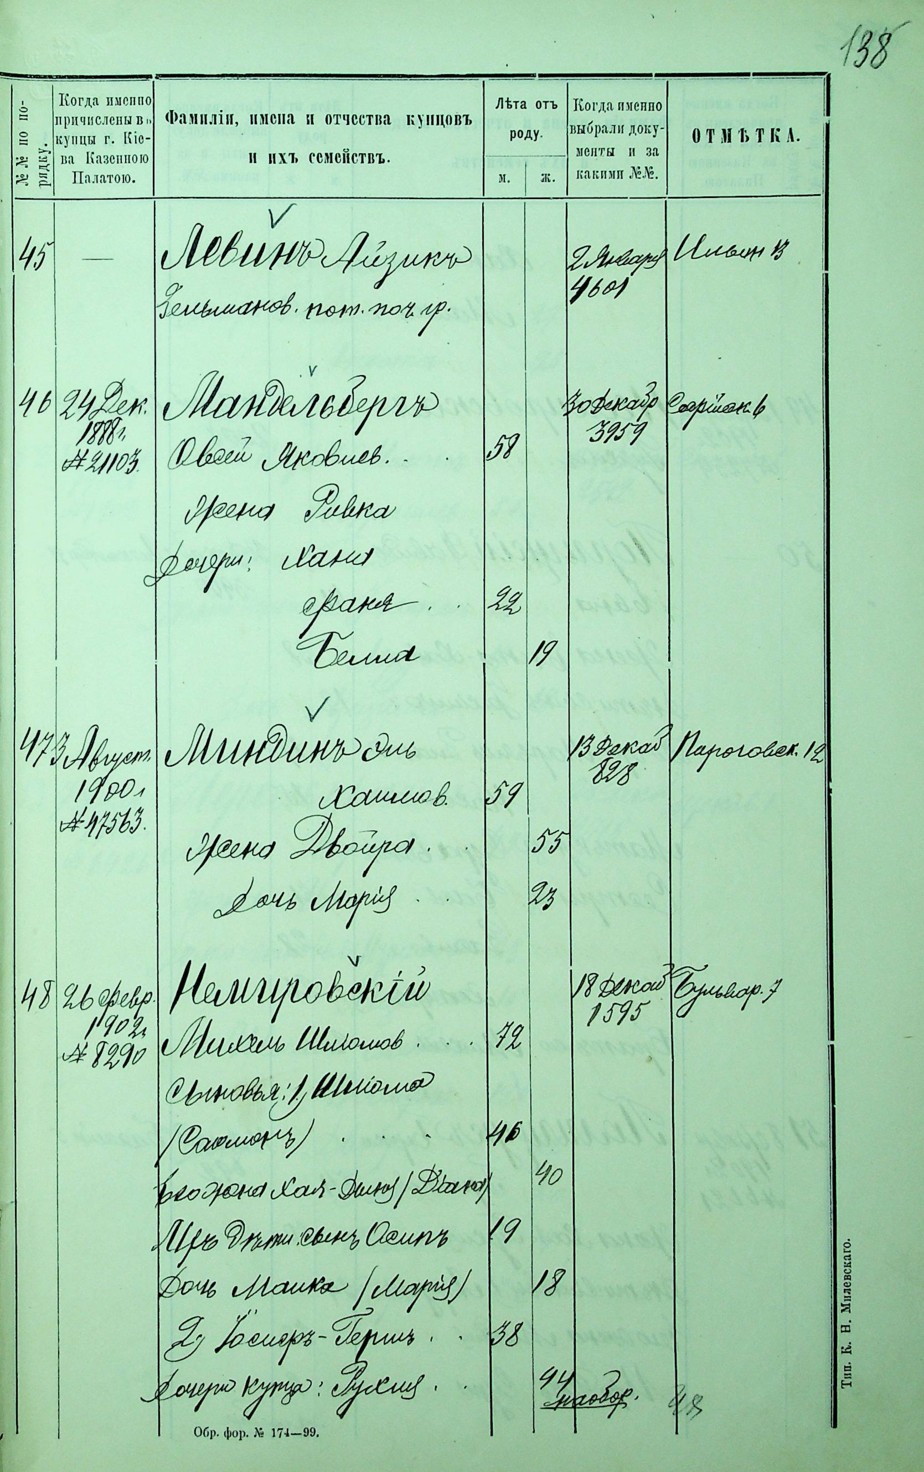 138
№№ по порядку.
Когда именно причислены въ купцы г. Кіева Казенною Палатою.
Фамиліи, имена и отчества купцовъ и ихъ семействъ.
Лѣта отъ роду.
м. ж.
Когда именно выбрали документы и за какими №№.
ОТМѢТКА.
45 — Левинъ Айзикъ 2 Января
Зельманов. пот. поч. гр. 1601
46 24 Дек. Мандельбергъ 30 Декаб
1888 г. 3959
№ 21103. Овсей Яковлев. 58
Жена Ривка
Дочери: Хана
Фаня 22
Белла 19
47 3 Август. Миндинъ Эль 13 Декаб
1900 г. Хаимов. 59 828
№ 47563.
Жена Двойра 55
Дочь Марія 23
48 26 Февр. Немировскій 18 Декаб Бульвар. 7
1902 г. 1595
№ 8290 Михель Шлиомов 72
Сыновья: 1) Шлиома
(Соломонъ) 46
Его жена Хая-Дына (Діана) 40
Ихъ дѣти: сынъ Осипъ 19
Дочь Малка (Марія) 18
2) Іосифъ-Герш 38
Дочери купца: Рухля 44
наобор.
Обр. фор. № 174—99.
Тип. К. Н. Милевскаго.